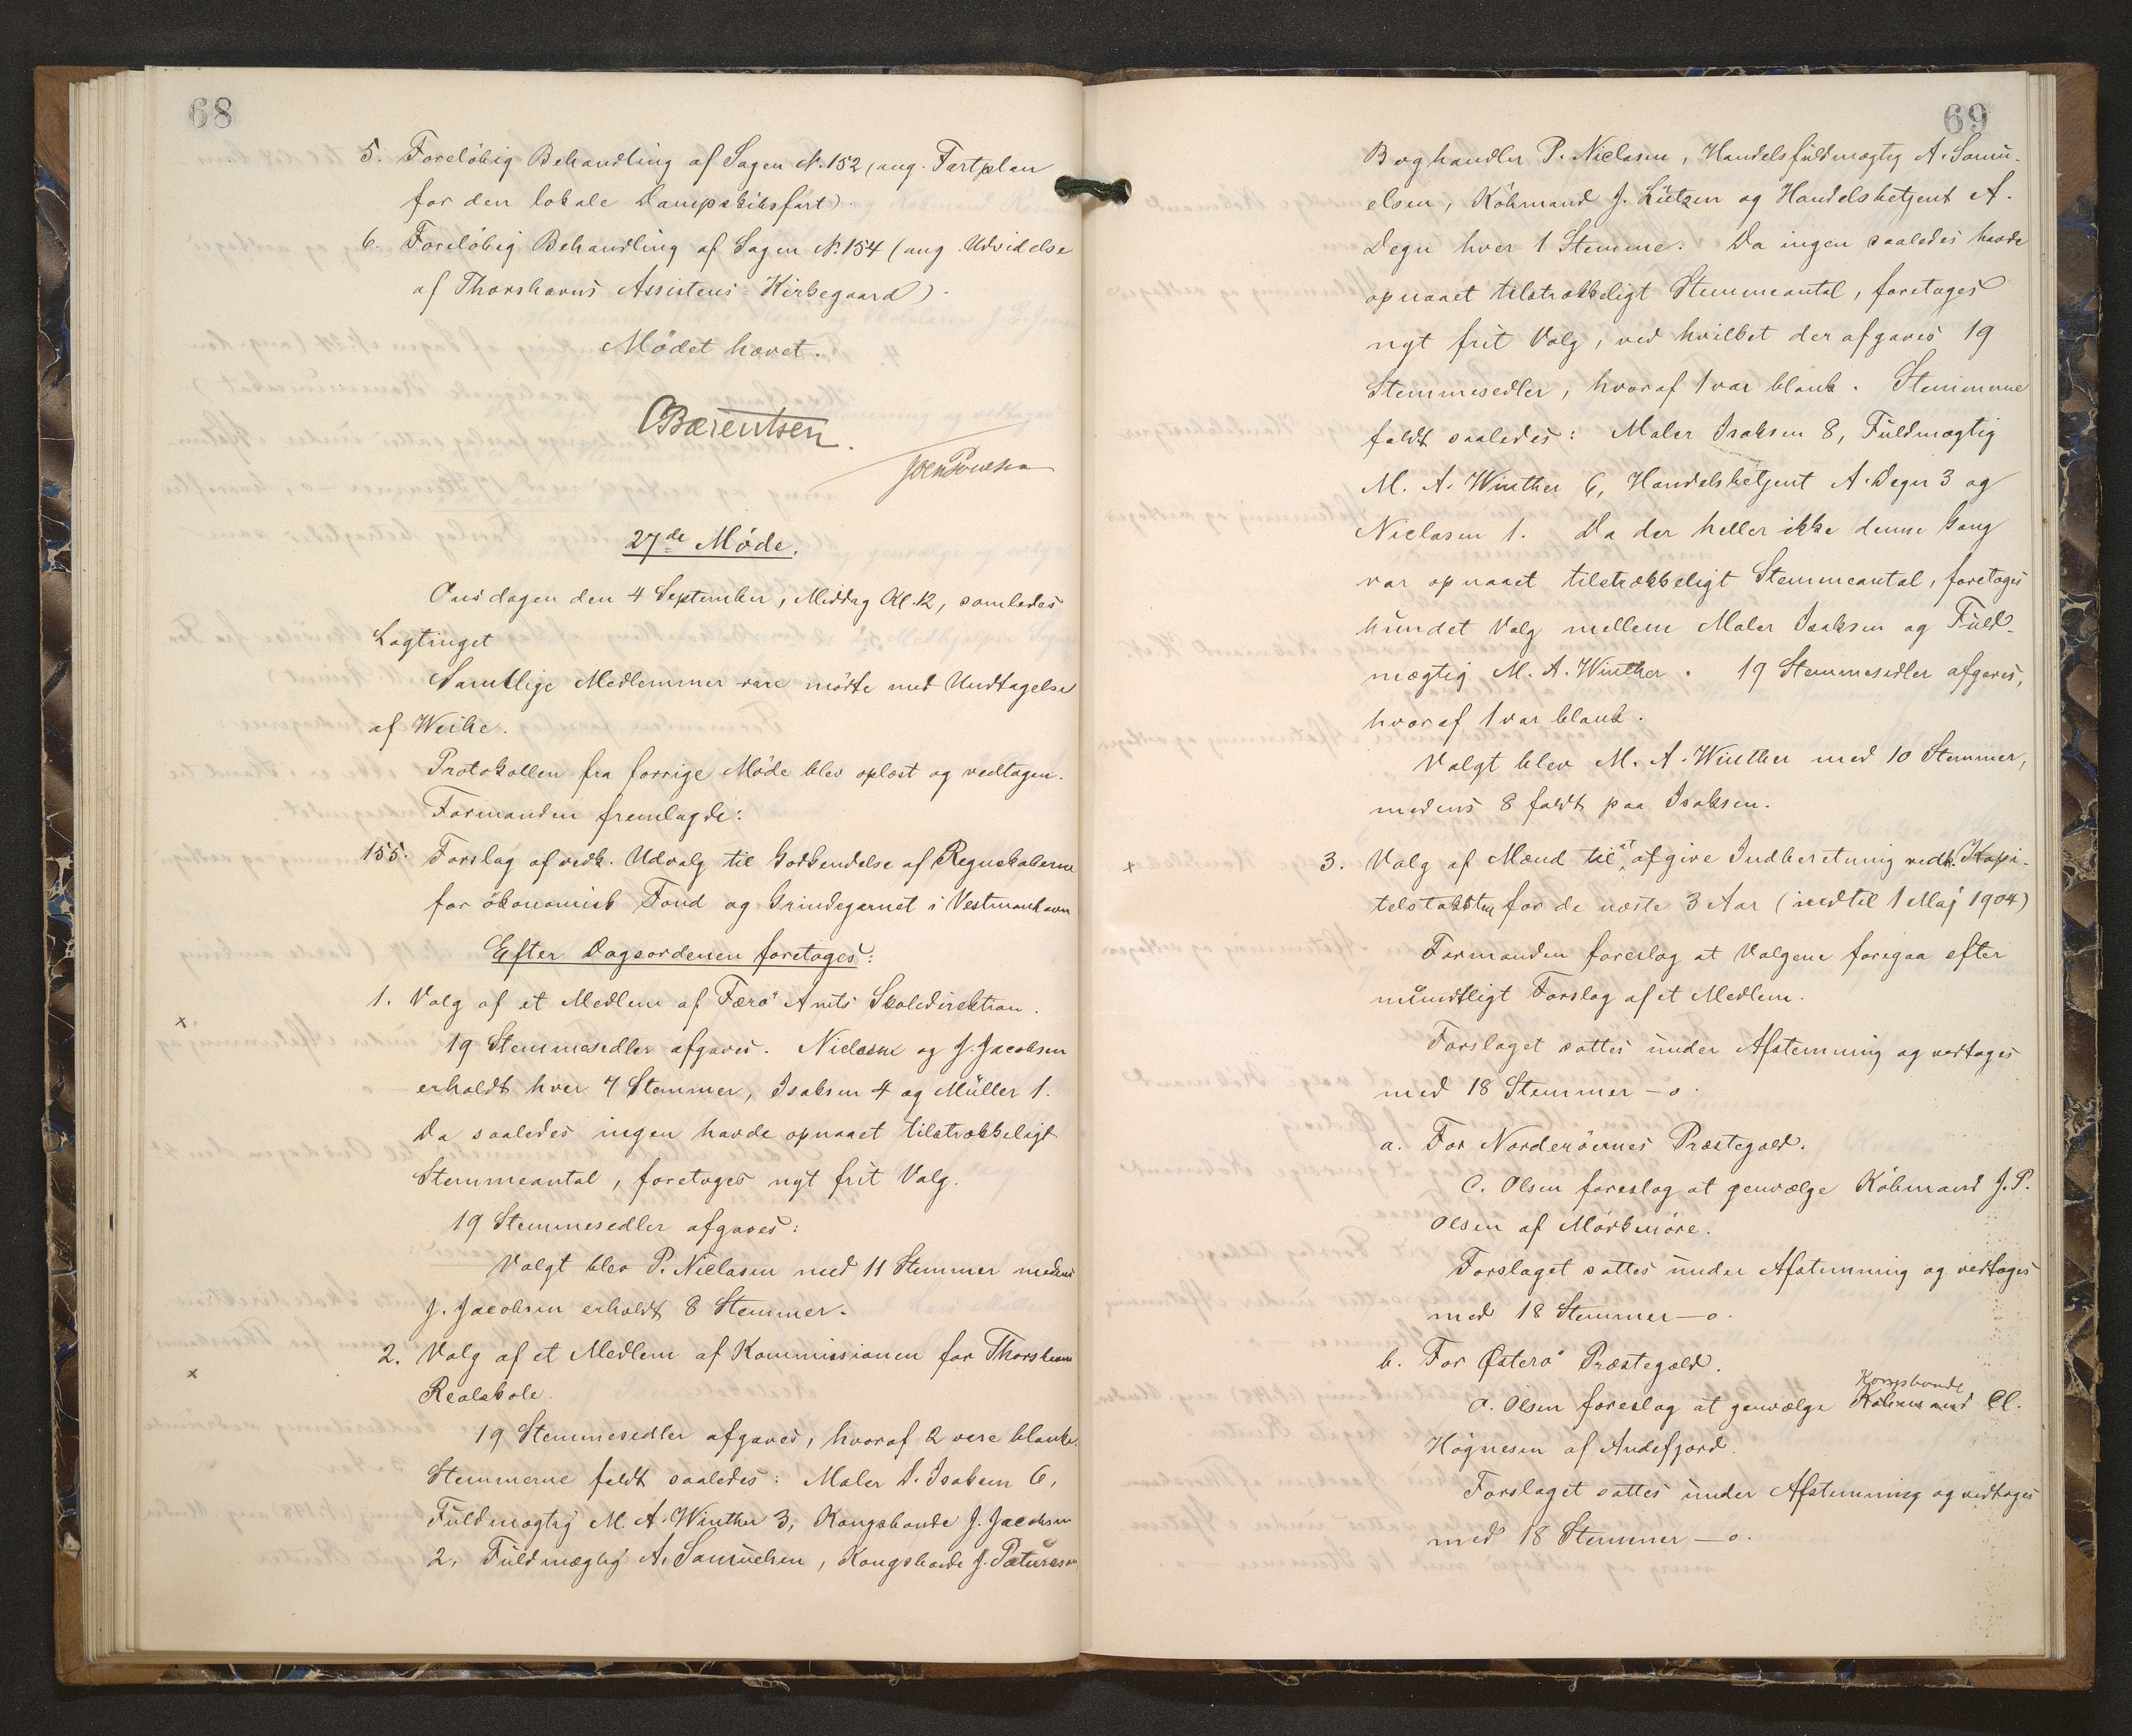 68
5. Foreløbig Behandling af Sagen No. 152 (ang. Fartplan
for den lokale Dampskibsfart).
6. Foreløbig Behandling af Sagen No. 154 (ang. Udvidelse
af Thorshavns Assistens-Kirkegaard).
Mødet hævet.
CBærentsen.
27de Møde.
Onsdagen den 4 September, Middag Kl. 12, samledes
Lagtinget
Samtlige Medlemmer vare mødte med Undtagelse
af Weihe.
Protokollen fra forrige Møde blev oplæst og vedtagen.
Formanden fremlagde:
155. Forslag af vedk. Udvalg til Godkendelse af Regnskaberne
for økonomisk Fond og Grindegarnet i Vestmanhavn
Efter Dagsordenen foretoges:
1. Valg af et Medlem af Færø Amts Skoledirektion.
19 Stemmesedler afgaves. Niclasen og J. Jacobsen
erholdt hver 7 Stemmer, Isaksen 4 og Müller 1.
Da saaledes ingen havde opnaaet tilstrækkeligt
Stemmeantal, foretoges nyt frit Valg.
19 Stemmesedler afgaves:
Valgt blev P. Niclasen med 11 Stemmer medens
J. Jacobsen erholdt 8 Stemmer.
2. Valg af et Medlem af Kommissionen for Thorshavns
Realskole.
19 Stemmesedler afgaves, hvoraf 2 vare blanke.
Stemmerne faldt saaledes: Maler D. Isaksen 6,
Fuldmægtig M. A. Winther 3, Kongsbonde J. Jacobsen
2, Fuldmægtig A. Samuelsen, Kongsbonde J. Patursson
69
Boghandler P. Niclasen, Handelsfuldmægtig A. Samu-
elsen, Købmand J. Lützen og Handelsbetjent A.
Degn hver 1 Stemme. Da ingen saaledes havde
opnaaet tilstrækkeligt Stemmeantal, foretoges
nyt frit Valg, ved hvilket der afgaves 19
Stemmesedler, hvoraf 1 var blank. Stemmerne
faldt saaledes: Maler Isaksen 8, Fuldmægtig
M. A. Winther 6, Handelsbetjent A. Degn 3 og
Niclasen 1. Da der heller ikke denne Gang
var opnaaet tilstrækkeligt Stemmeantal, foretoges
bundet Valg mellem Maler Isaksen og Fuld-
mægtig M. A. Winther. 19 Stemmesedler afgaves,
hvoraf 1 var blank.
Valgt blev M. A. Winther med 10 Stemmer,
medens 8 faldt paa Isaksen.
3. Valg af Mænd til at afgive Indberetning vedk. Kapi-
telstaksten for de næste 3 Aar (indtil 1 Maj 1904)
Formanden foreslog at Valgene foregaa efter
mundtligt Forslag af et Medlem.
Forslaget sattes under Afstemning og vedtoges
med 18 Stemmer – o.
a. For Norderøernes Præstegæld.
C. Olsen foreslog at genvælge Købmand J. P.
Olsen af Mørkmøre.
Forslaget sattes under Afstemning og vedtoges
med 18 Stemmer – o.
b. For Østerø Præstegæld.
Kongsbonde
O. Olsen foreslog at genvælge Købmand Cl.
Høgnesen af Andefjord.
Forslaget sattes under Afstemning og vedtoges
med 18 Stemmer – o.